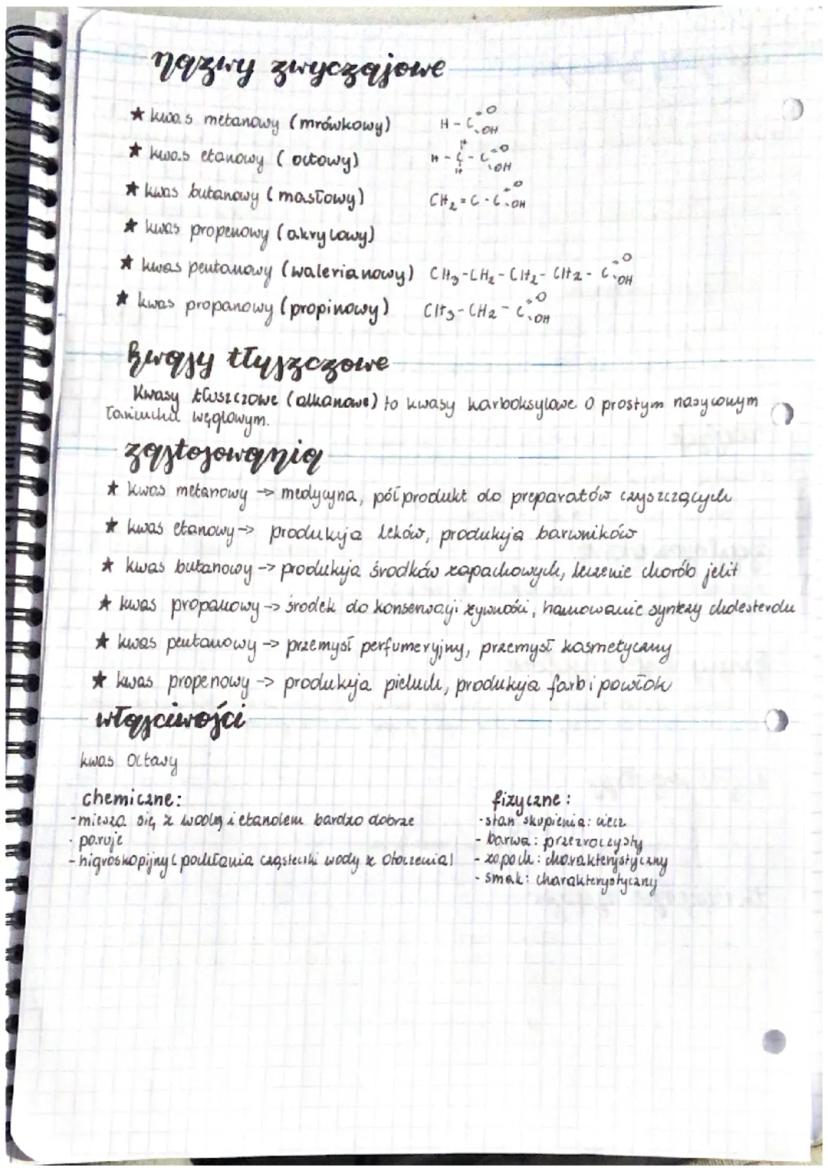 nazwy zwyczajowe
★ kwas metanowy (mrówkowy) H - C =O -OH
★ kwas etanowy (octowy) H - C - C =O -OH
H
H
★ kwas butanowy (masłowy) CH2 = C - C =O -OH
★ kwas propenowy (akrylowy)
★ kwas pentanowy (walerianowy) CH3-CH2-CH2-CH2-C =O -OH
★ kwas propanowy (propinowy) CH3-CH2-C =O -OH
kwasy tłuszczowe
Kwasy tłuszczowe (alkanowe) to kwasy karboksylowe o prostym nasyconym
łańcuchu węglowym.
zastosowania
★ kwas metanowy → medycyna, półprodukt do preparatów czyszczących
★ kwas etanowy → produkcja leków, produkcja barwników
★ kwas butanowy → produkcja środków zapachowych, leczenie chorób jelit
★ kwas propanowy → środek do konserwacji żywności, hamowanie syntezy cholesterolu
★ kwas pentanowy → przemysł perfumeryjny, przemysł kosmetyczny
★ kwas propenowy → produkcja pieluch, produkcja farb i powłok
właściwości
kwas octowy
chemiczne:
- miesza się z wodą i etanolem bardzo dobrze
- paruje
- higroskopijny (pochłania cząsteczki wody z otoczenia)
fizyczne:
- stan skupienia: ciecz
- barwa: przezroczysty
- zapach: charakterystyczny
- smak: charakterystyczny